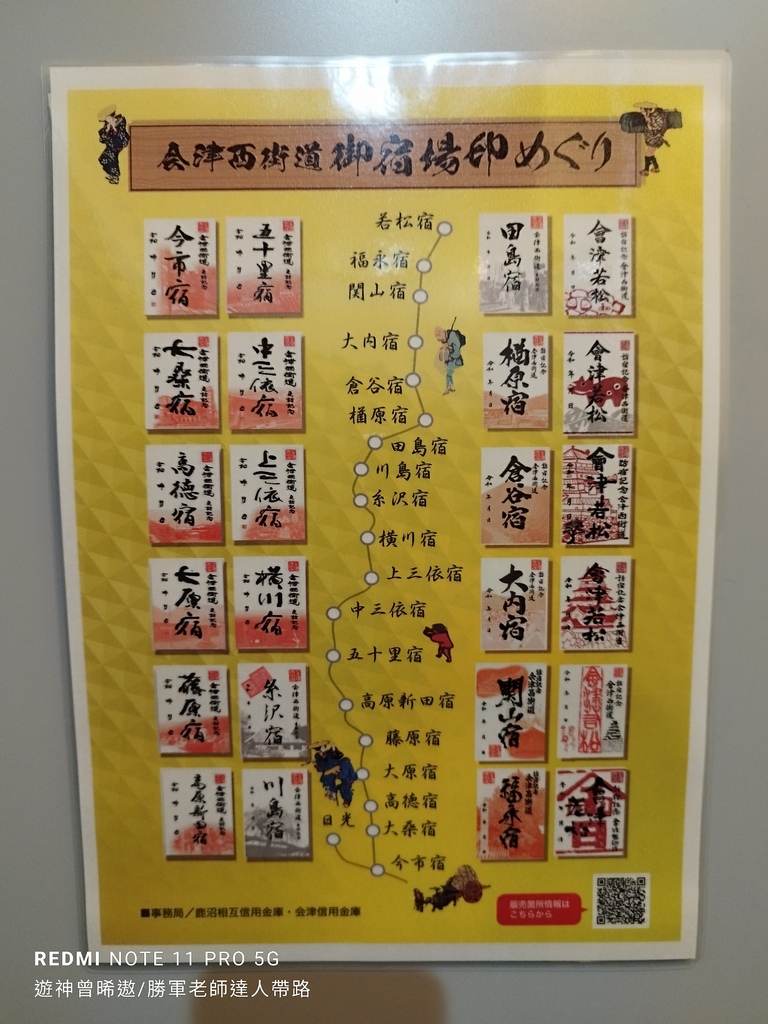 会津西街道御宿場印めぐり
今市宿
五十里宿
大桑宿
中三依宿
高徳宿
上三依宿
大原宿
横川宿
藤原宿
糸沢宿
高原新田宿
川島宿
若松宿
福永宿
関山宿
大内宿
倉谷宿
楢原宿
田島宿
川島宿
糸沢宿
横川宿
上三依宿
中三依宿
五十里宿
高原新田宿
藤原宿
大原宿
高徳宿
大桑宿
日光
今市宿
田島宿
會津若松
楢原宿
會津若松
倉谷宿
會津若松
大内宿
會津若松
関山宿
福永宿
■事務局/鹿沼相互信用金庫・会津信用金庫
販売箇所情報は
こちらから
REDMI NOTE 11 PRO 5G
遊神曾晞遨/勝軍老師達人帶路